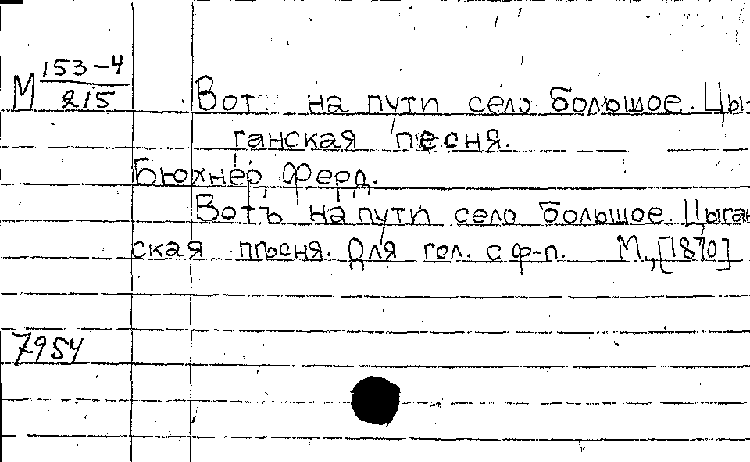 М 153-4/215
Вот на пути село большое. Цы-
ганская песня.
Бюхнер, Ферд.
Вотъ на пути село большое. Цыган-
ская пѣсня. Для гол. с ф-п. М., [1870]
7954